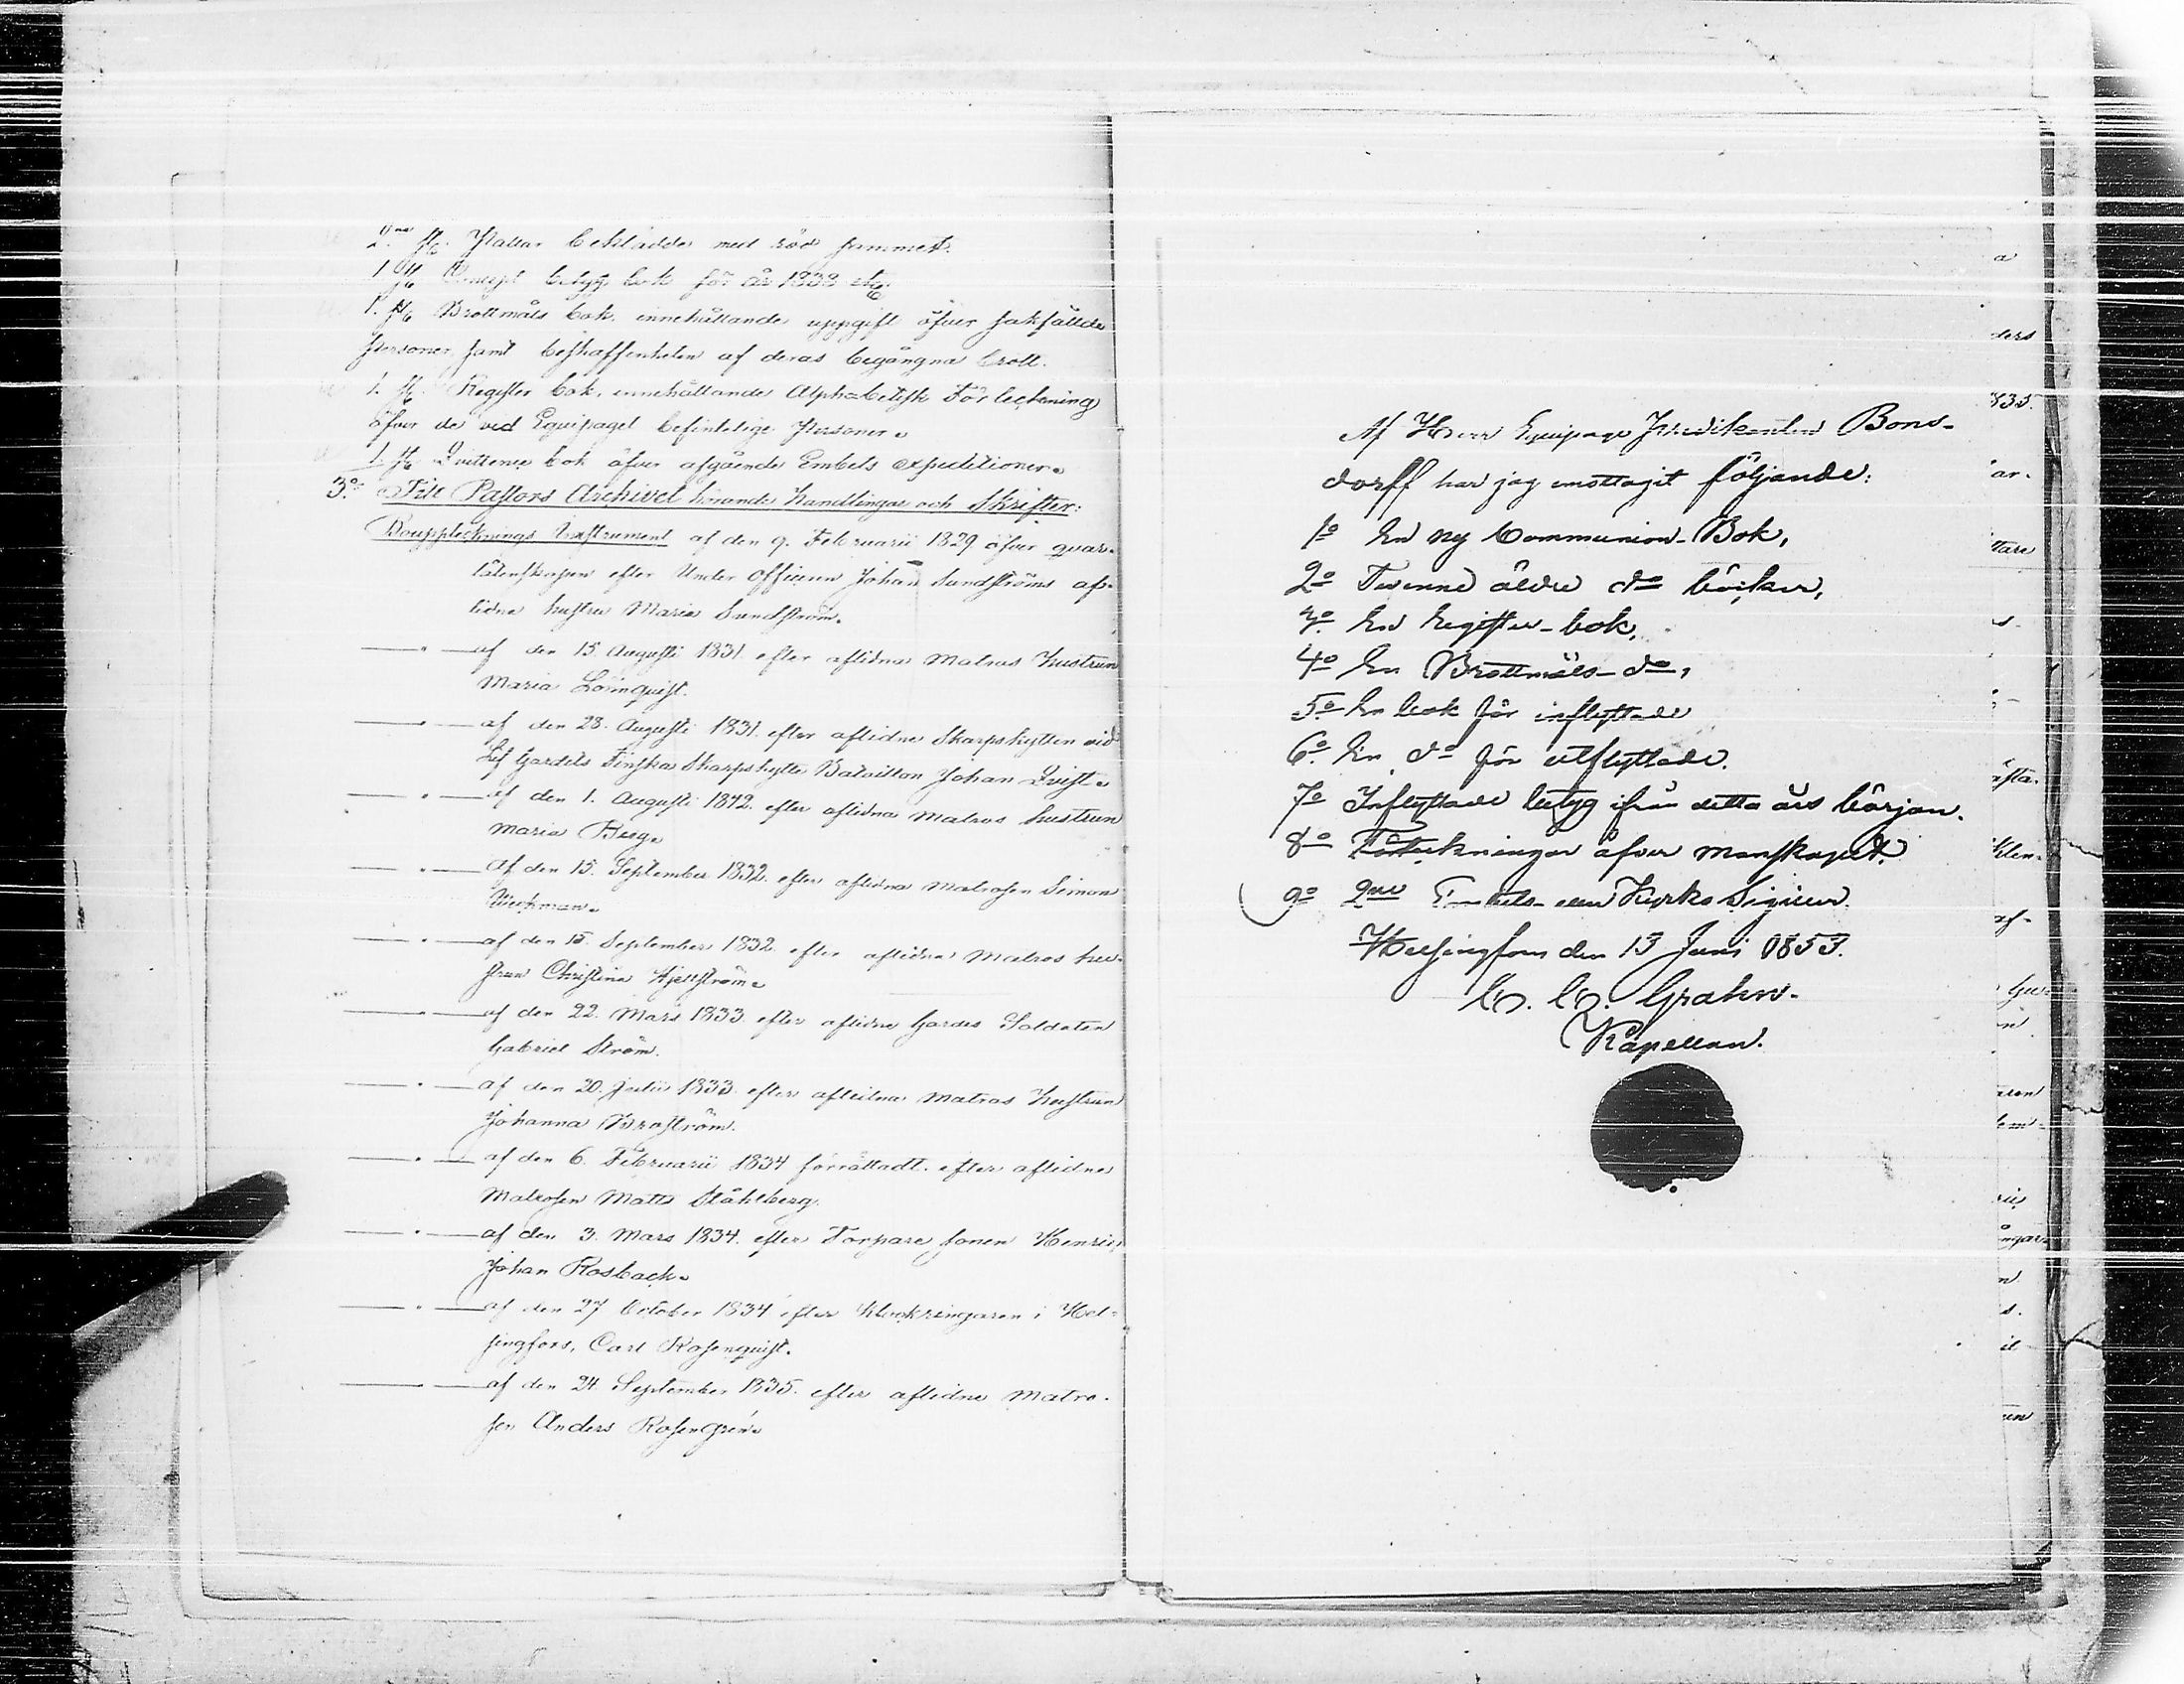 2ne st. Pallar beklädde med röd sammet.
1 st. Concept betyg bok för år 1838 etc
1. st. Brottmåls bok, innehållande uppgift öfver sakfällda
Personer, samt beskaffenheten af deras begångna brott.
1. st. Register bok, innehållande Alphabetisk Förteckning
öfver de vid Equipaget befintelige Personer.
1. st. Quittence bok öfver afgående Embets expeditioner.
3:o Till Pastors Archivet hörande Handlingar och Skrifter:
Bouppteknings Instrument af den 9. Februarii 1829 öfver qvar-
låtenskapen efter Under Officeren Johan Sundströms af-
lidna hustru Maria Sundström.
— " — af den 15. Augusti 1831. efter aflidna Matros Hustrun
Maria Lönnquist.
— " — af den 28. Augusti 1831. efter aflidne Skarpskytten vid
Lif Gardets Finska Skarpskytte Bataillon Johan Qvist.
— " — af den 1. Augusti 1842. efter aflidna Matros hustrun
Maria Berg.
— " — af den 15. September 1832. efter aflidne Matrosen Simon
— " — af den 15. September 1832. efter aflidna Matros hu-
strun Christina Hjellström.
— " — af den 22. Mars 1833. efter aflidne Gardes Soldaten
Gabriel Ström.
— " — af den 20. Julii 1833. efter aflidna Matros Hustrun
Johanna Broström.
— " — af den 6. Februarii 1834 förrättadt. efter aflidne
Matrosen Matts Ståhlberg.
— " — af den 3. Mars 1834. efter Torpare sonen Henric
Johan Rosback.
— " — af den 27 October 1834 efter Klockringaren i Hel-
singfors, Carl Rosenquist.
— " — af den 24. September 1835. efter aflidne Matro-
sen Anders Rosengrén.
Af Herr Equipage Predikanten Bons-
dorff har jag emottagit följande:
1o En ny Communion-Bok,
2o Tvenne äldre do böcker,
3o En Register-bok,
4o En Brottmåls-do,
5o En bok för inflyttade
6o En do för utflyttade.
7o Inflyttade betyg ifrån detta års början.
8o Förteckningar öfver manskapet.
9o 2ne Embets- Kyrko Sigiller.
Helsingfors den 13 Juni 1853.
C. C. Grahn.
Kapellan.
a
ders
835.
ar-
tare
s-
äfta-
klen-
af-
Gus-
n
aren
em-
rii
ngar-
n
s.
il
en